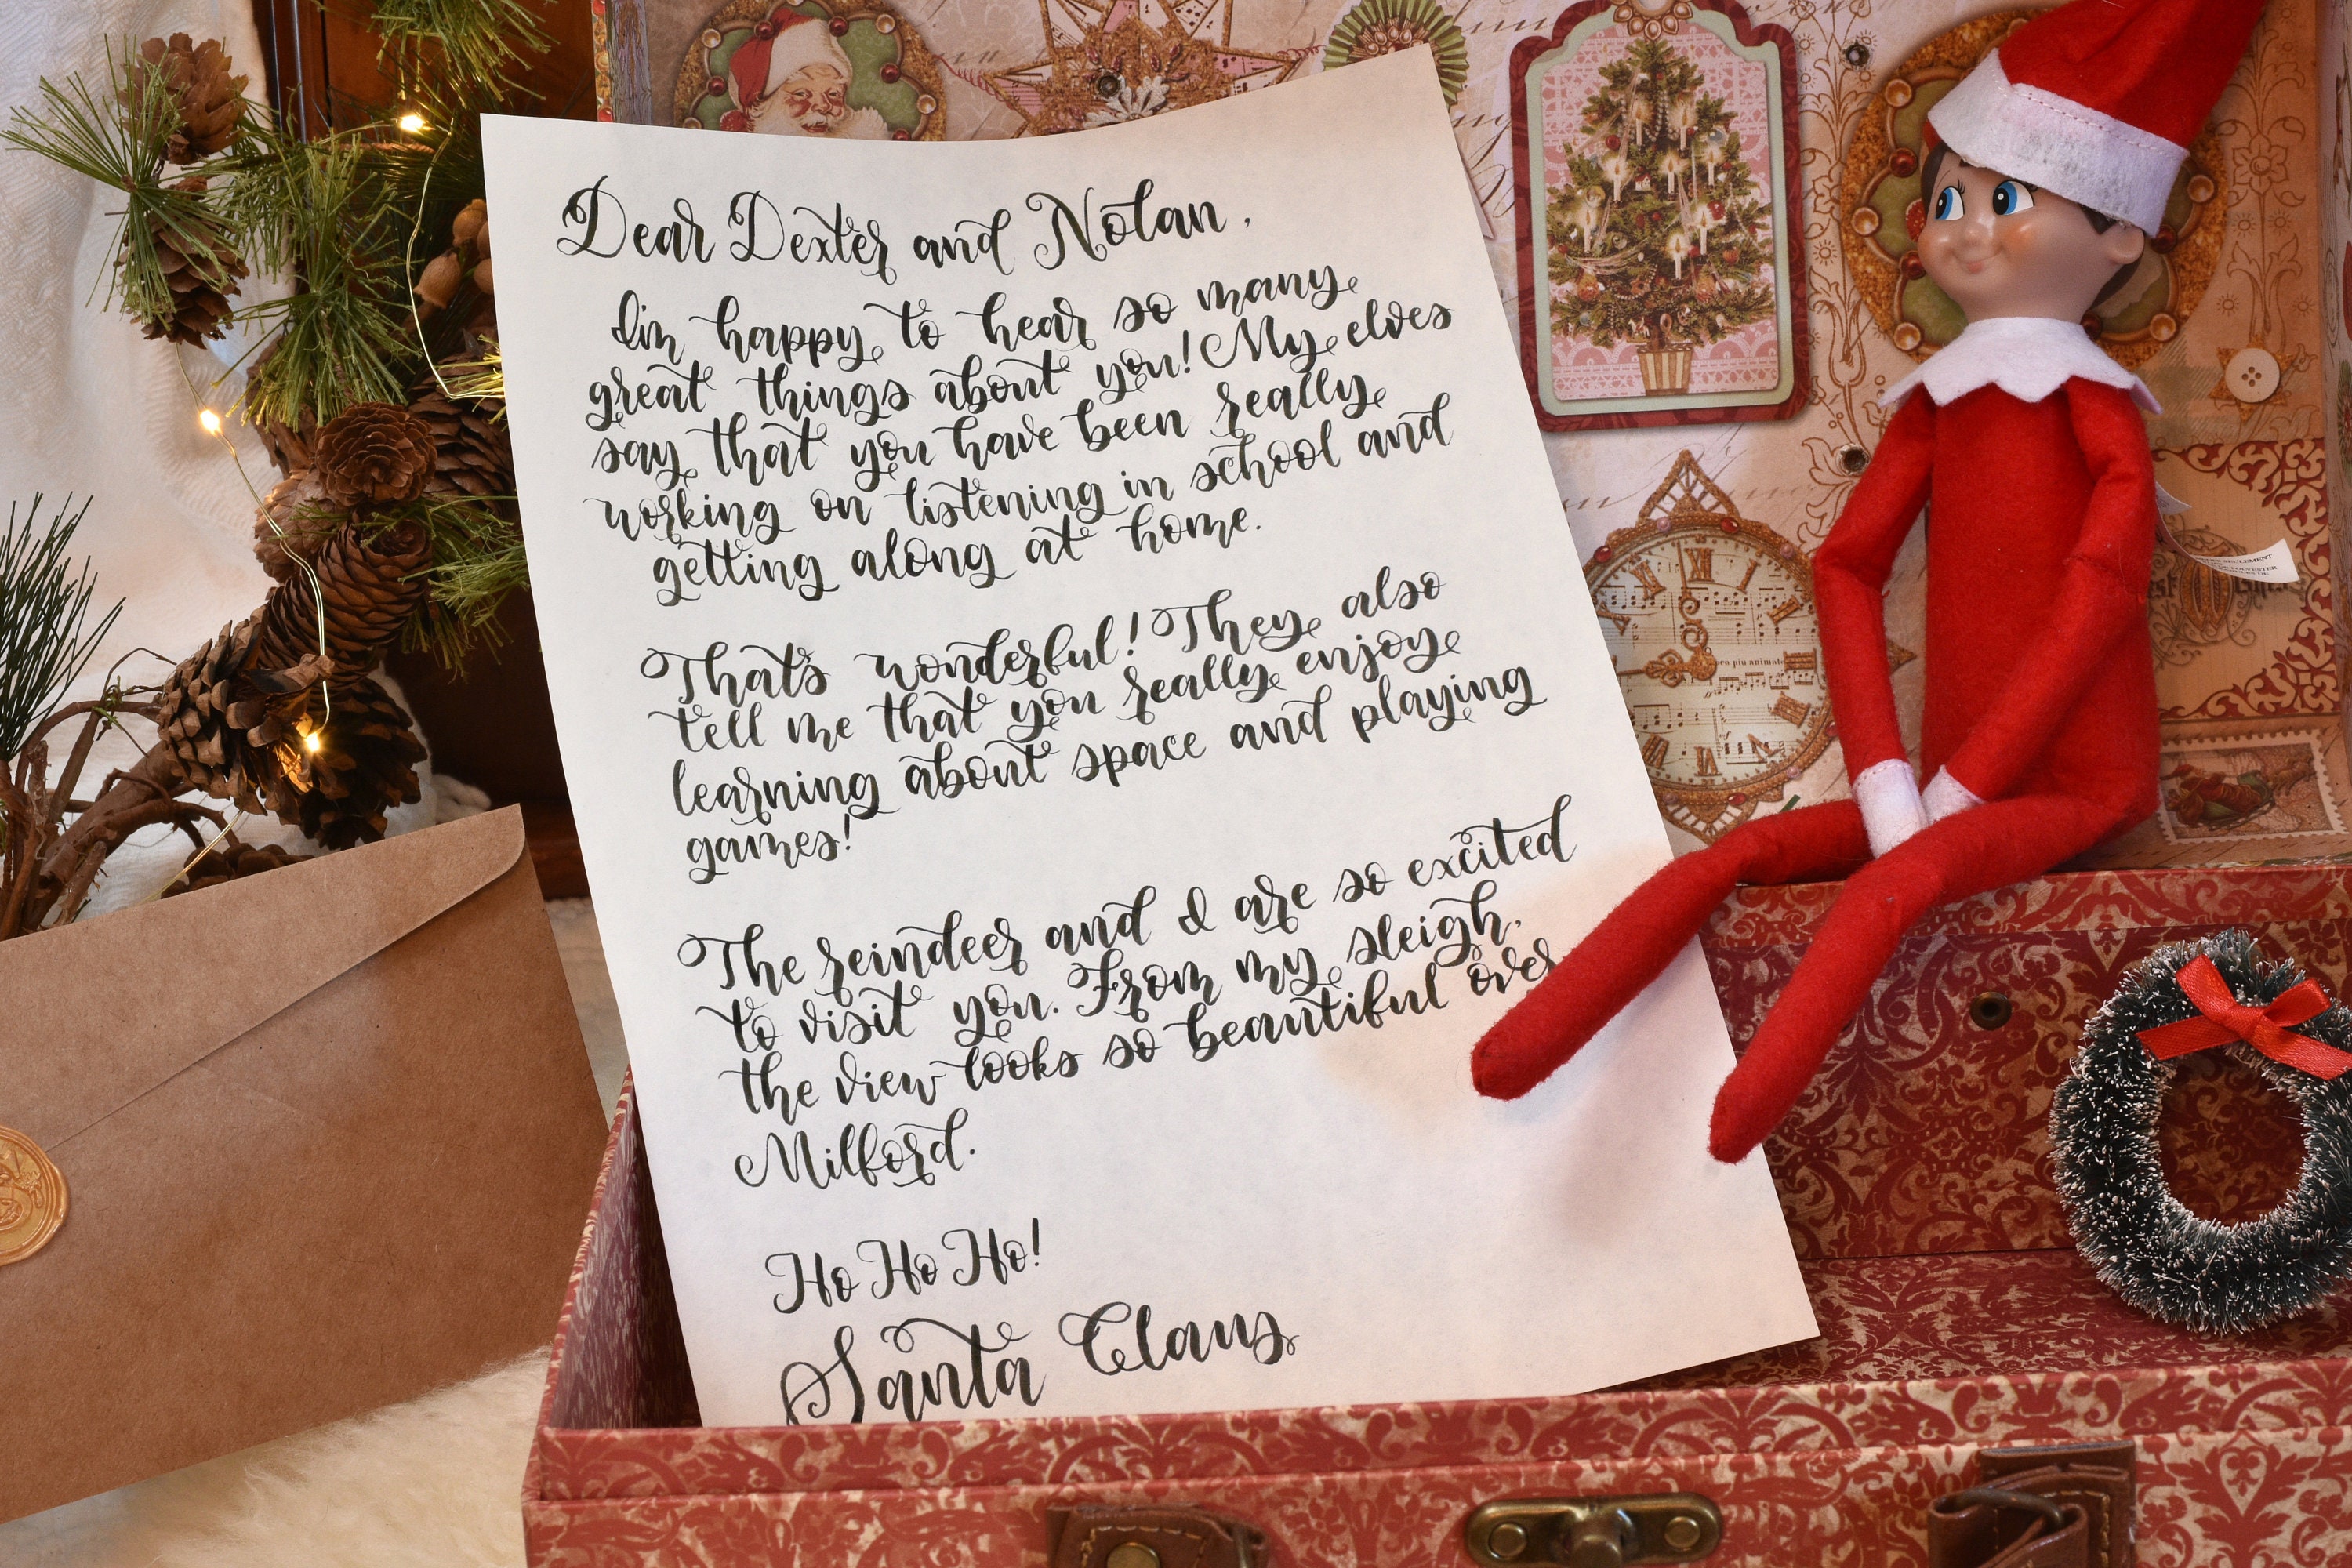 Dear Dexter and Nolan,
I'm happy to hear so many
great things about you! My elves
say that you have been really
working on listening in school and
getting along at home.
That's wonderful! They also
tell me that you really enjoy
learning about space and playing
games!
The reindeer and I are so excited
to visit you. From my sleigh,
the view looks so beautiful over
Milford.
Ho Ho Ho!
Santa Claus
XII
I